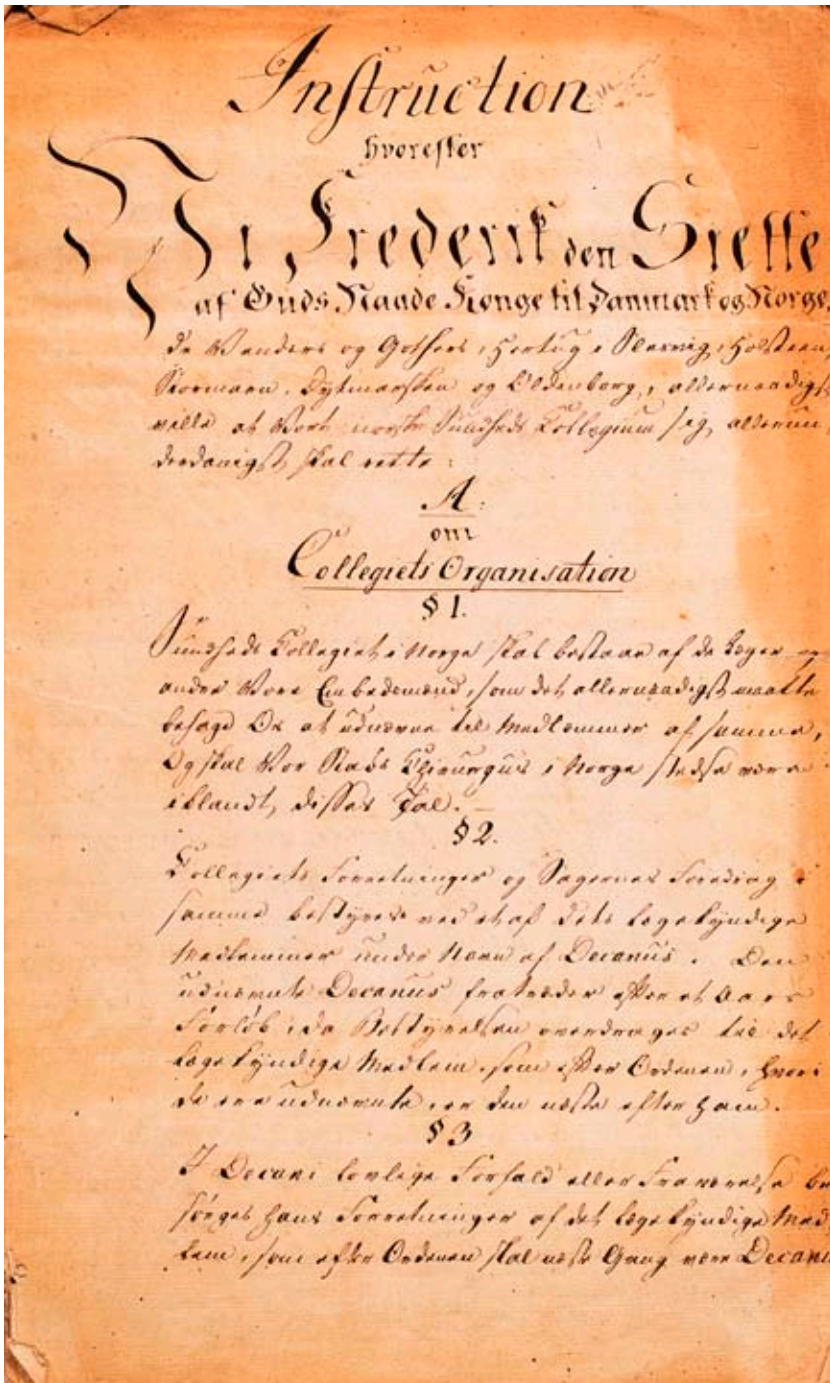 Instruction
hvorefter
Vi Frederik den Siette
af Guds Naade Konge til Danmark og Norge,
de Venders og Gothers, Hertug i Slesvig, Holsteen,
Stormarn, Dytmarsken og Oldenborg, allernaadigst
ville at Vort norske Sundheds Collegium sig allerun
derdanigst skal rette:
A:
om
Collegiets Organisation
§ 1.
Sundheds Collegiet i Norge skal bestaae af de Læger og
andre Vore Embedsmænd, som det allernaadigst maatte
behage Os at udnævne til Medlemmer af samme,
Og skal Vor Stabs Chirurgus i Norge stedse være
iblandt disses Tal.
§ 2.
Collegiets Forretninger og Sagernes Foredrag i
samme bestyres ved et af dets lægekyndige
Medlemmer under Navn af Decanus. Den
udnævnte Decanus fratræder efter et Aars
Forløb, da Bestyrelsen overdrages til det
lægekyndige Medlem, som efter Ordenen, hvori
de ere udnævnte, er den næste efter ham.
§ 3
I Decani lovlige Forfald eller Fraværelse be
sørges hans Forretninger af det lægekyndige Med
lem, som efter Ordenen skal næste Gang være Decanu